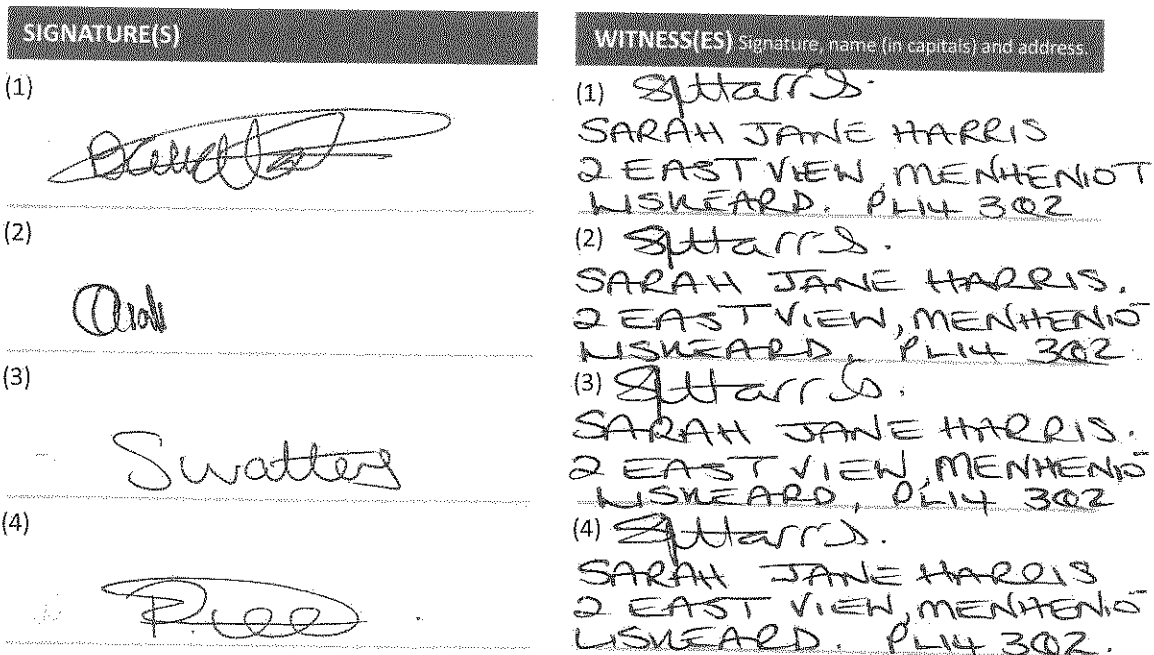 SIGNATURE(S)
(1)
(2)
(3)
Swatters
(4)
WITNESS(ES) Signature, name (in capitals) and address.
(1) SJHarris.
SARAH JANE HARRIS
2 EAST VIEW, MENHENIOT
LISKEARD. PL14 3QZ
(2) SJHarris.
SARAH JANE HARRIS.
2 EAST VIEW, MENHENIO
LISKEARD, PL14 3QZ.
(3) SJHarris.
SARAH JANE HARRIS.
2 EAST VIEW, MENHENIO
LISKEARD, PL14 3QZ
(4) SJHarris.
SARAH JANE HARRIS
2 EAST VIEW, MENHENIO
LISKEARD. PL14 3QZ.